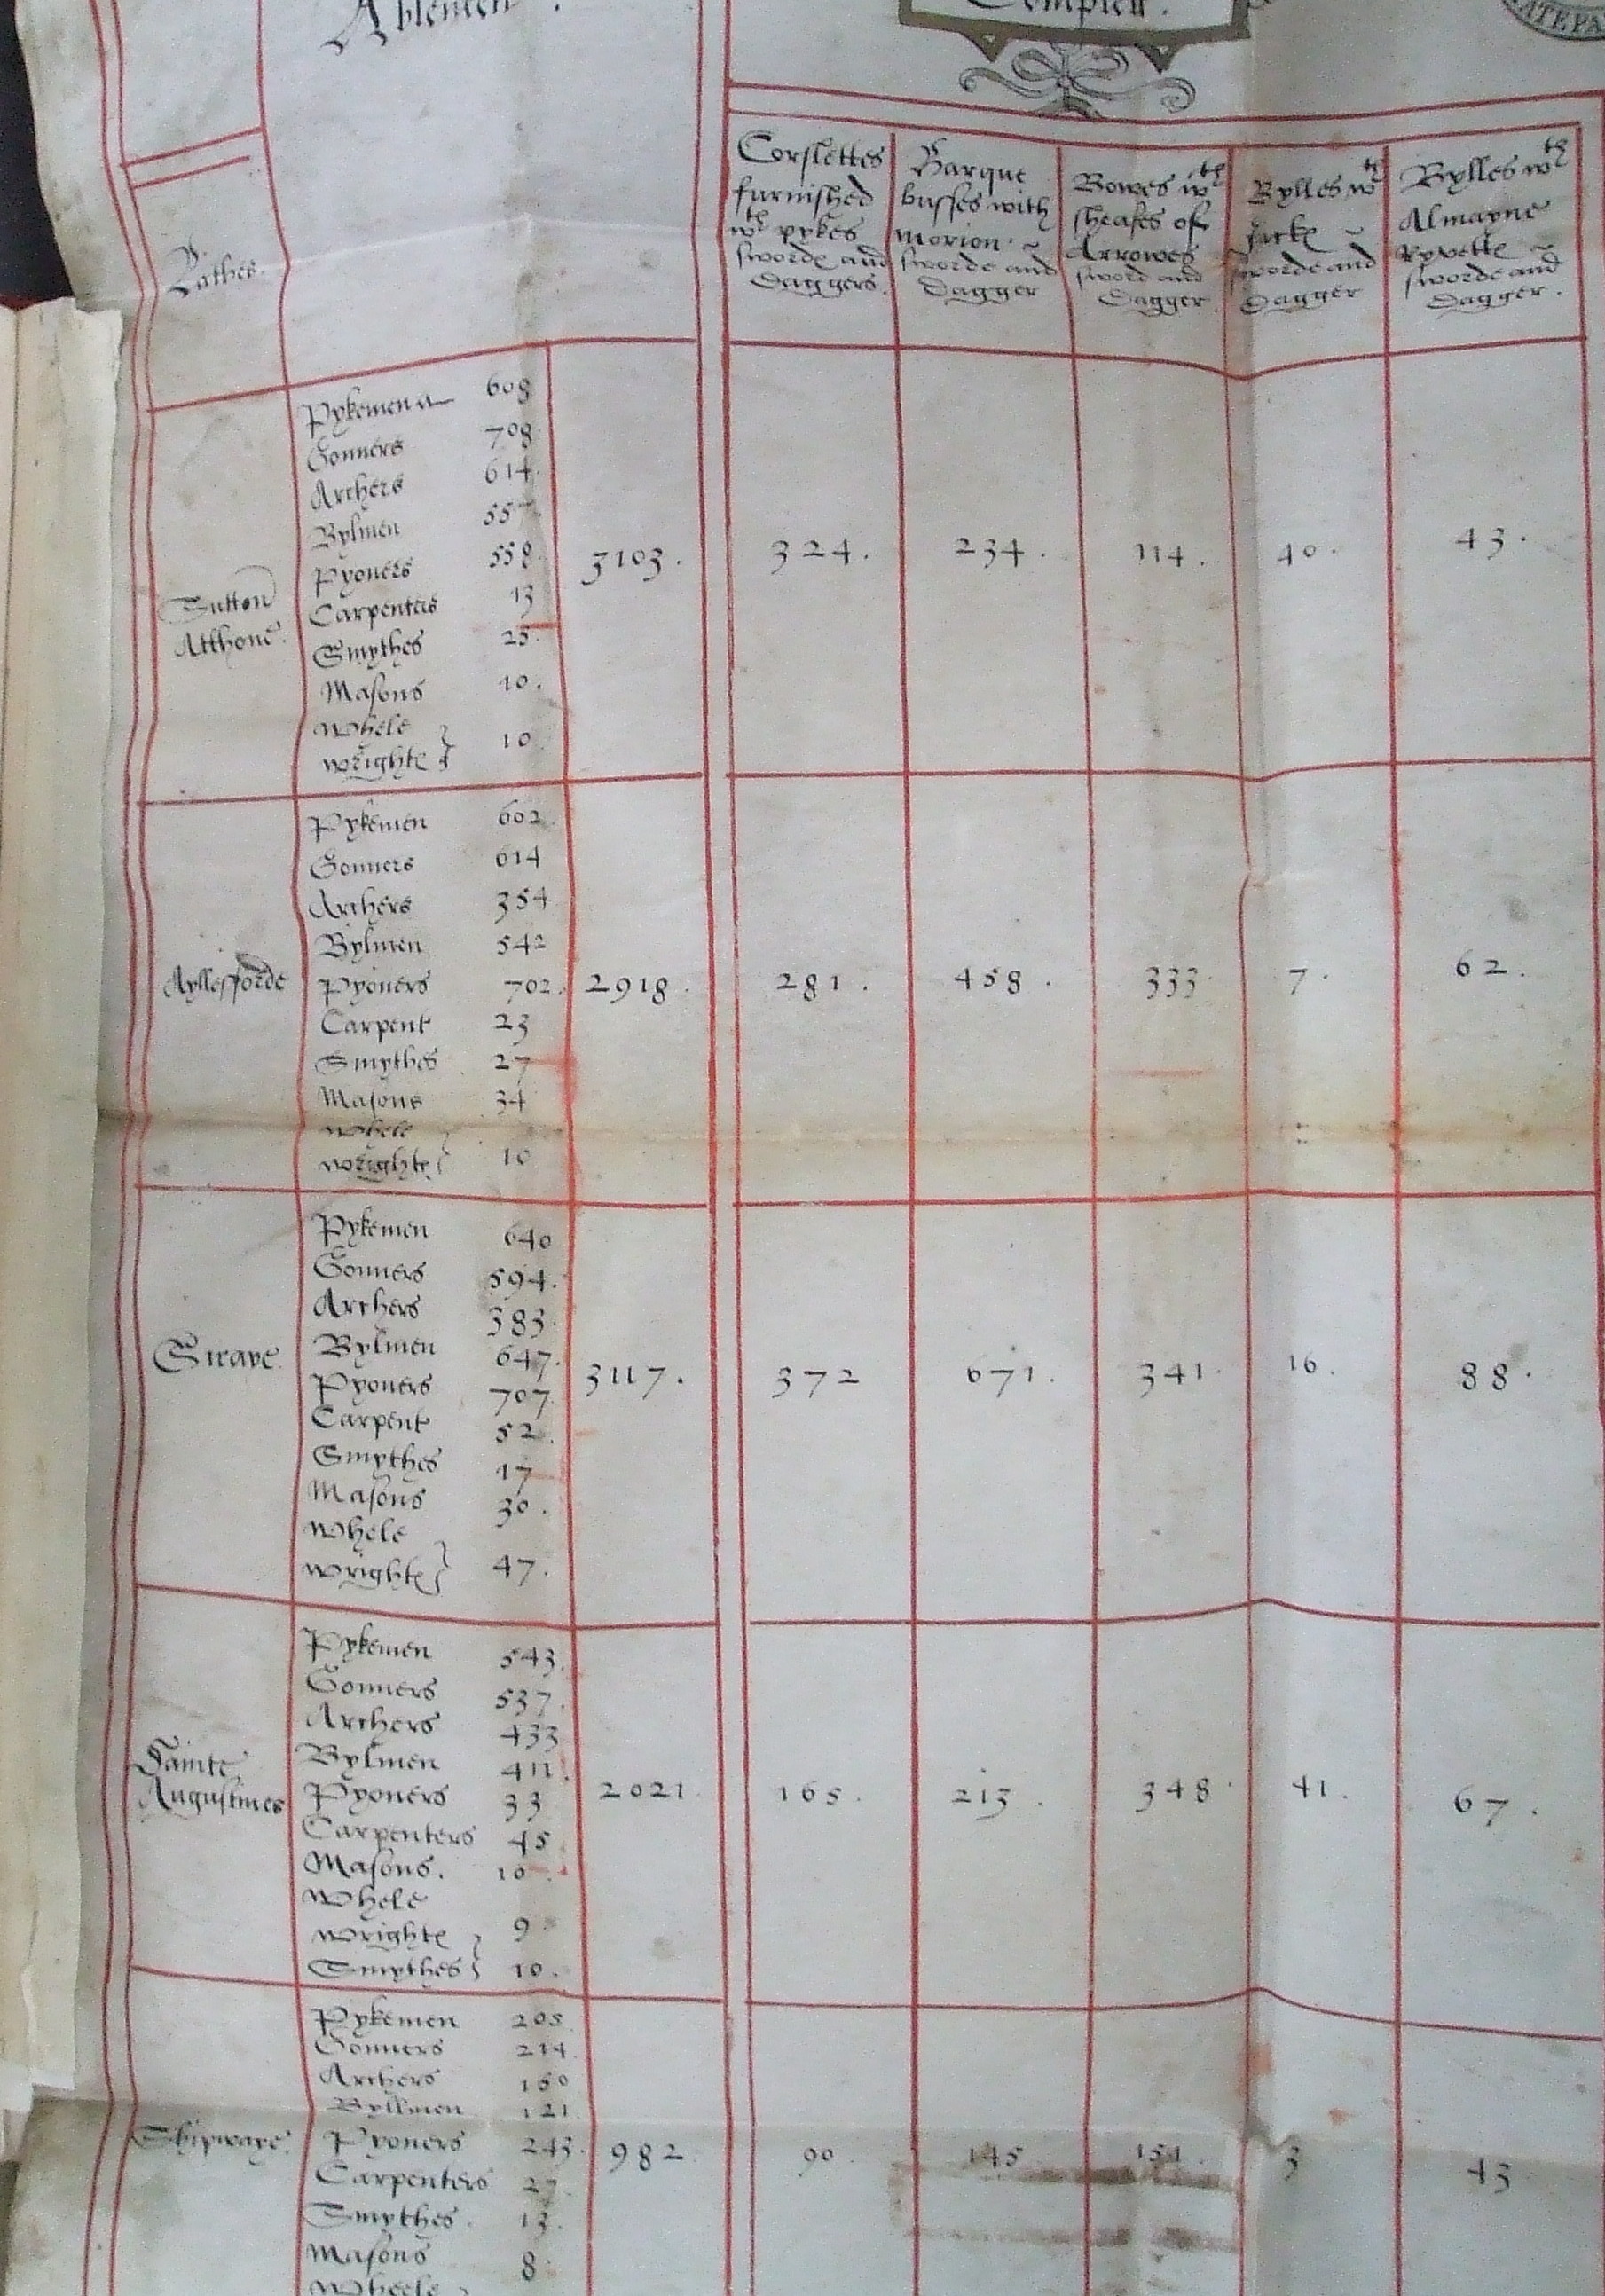 Ablemen.
Complett.
ATE PA
Lathes.
Corslettes
furnished
wth pykes
sworde and
Daggers.
Harque
busses with
morion
sworde and
Dagger
Bowes wth
sheafes of
Arrowes
sword and
Dagger
Bylles wth
Jacke
sworde and
Dagger
Bylles wth
Almayne
Ryvette
sworde and
Dagger.
Sutton
Atthone.
Pykemen 608
Gonners 708
Archers 614.
Bylmen 557
Pyoners 558.
Carpenters 13
Smythes 25.
Masons 10.
Whele
wrighte 10
3103. 324. 234. 114. 40. 43.
Ayllefforde
Pykemen 602
Gonners 614
Archers 354
Bylmen 542
Pyoners 702.
Carpent 23
Smythes 27
Masons 34
Whele
wrighte 10
2918. 281. 458. 333 7. 62.
Scraye
Pykemen 640
Gonners 594.
Archers 383.
Bylmen 647.
Pyoners 707
Carpent 52.
Smythes 17
Masons 30.
Whele
wrighte 47.
3117. 372 671. 341. 16. 88.
Sainte
Augustines
Pykemen 543.
Gonners 537.
Archers 433
Bylmen 411.
Pyoners 33
Carpenters 45
Masons. 10.
Whele
wrighte 9.
Smythes 10.
2021. 165. 213. 348. 41. 67.
Shipwaye.
Pykemen 205
Gonners 214.
Archers 150
Byllmen 121
Pyoners 243.
Carpenters 27.
Smythes. 13.
Masons 8.
Wheele
982. 90. 145 151. 3 43